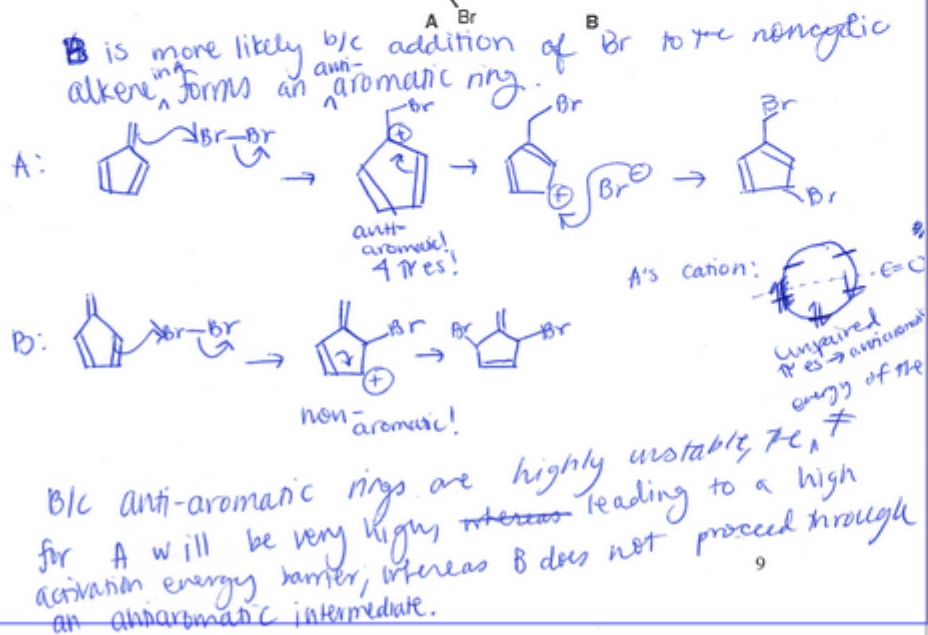 A Br B
B is more likely b/c addition of Br to the noncyclic
alkene in A forms an anti-aromatic ring.
A:
Br—Br
Br
+
anti-
aromatic!
4 π es!
Br
+
Br⊖
Br
Br
A's cation:
E=0
unpaired
π es → antiaromatic
B:
Br—Br
Br
+
non-aromatic!
Br
Br
energy of the
B/c anti-aromatic rings are highly unstable, the ‡
for A will be very high, whereas leading to a high
activation energy barrier, whereas B does not proceed through
an antiaromatic intermediate.
9